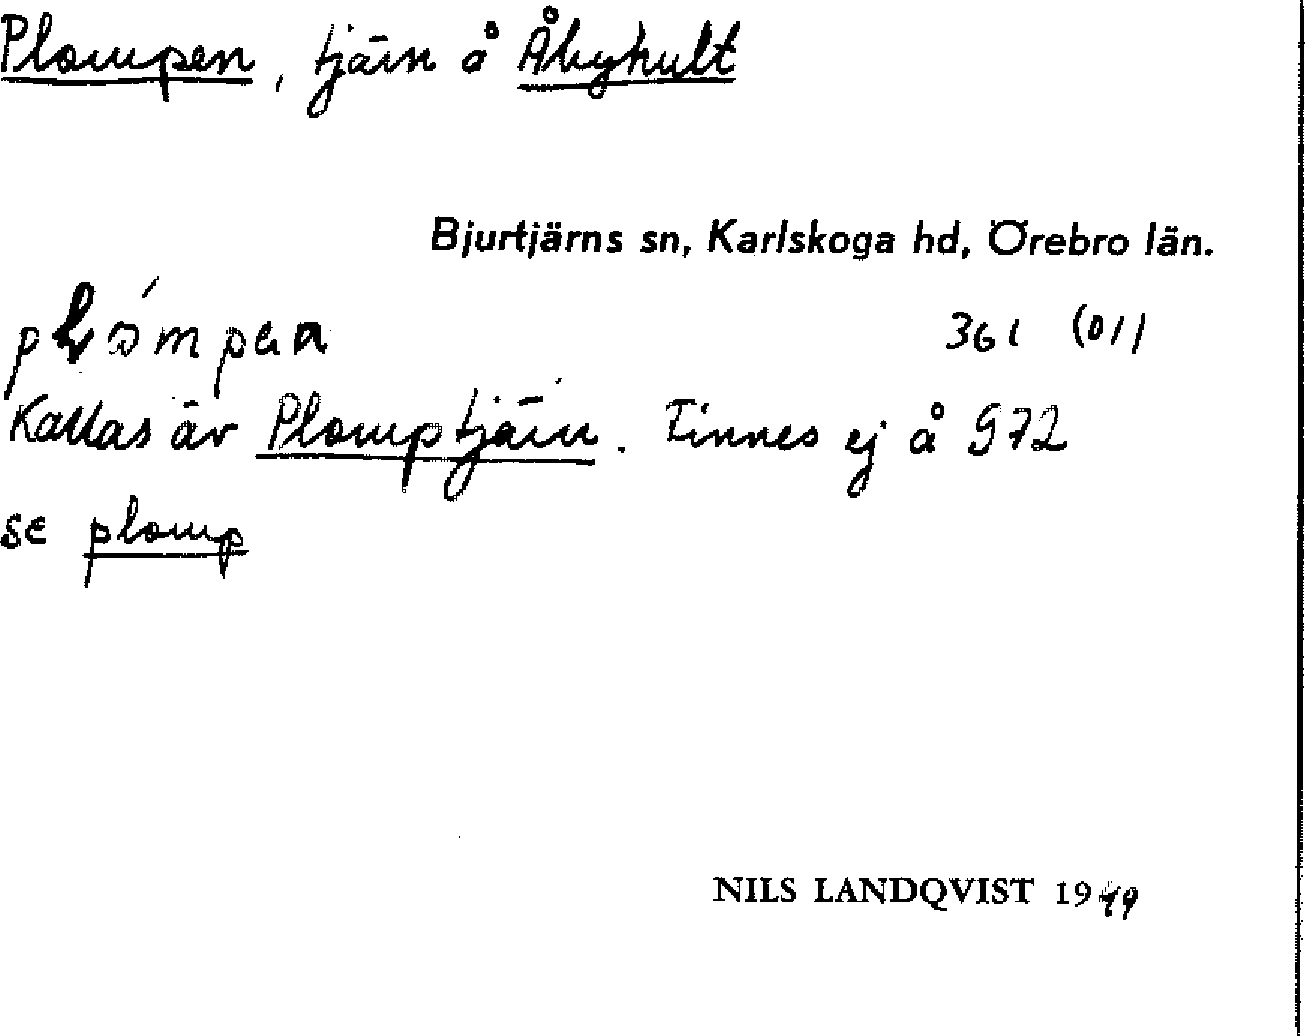 Plompen, tjärn å Åbyhult
Bjurtjärns sn, Karlskoga hd, Örebro län.
361 (01)
Kallas äv Plomptjärn. Finnes ej å G72
se plomp
NILS LANDQVIST 1949